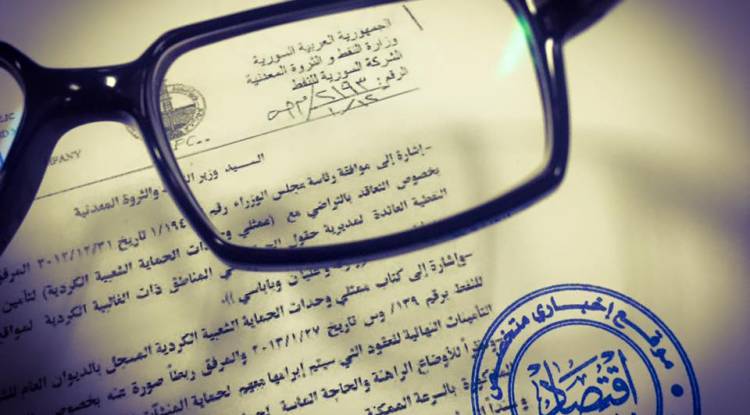 الجمهورية العربية السورية
وزارة النفط و الثروة المعدنية
الشركة السورية للنفط
الرقم: /٢١٩٣
١٠/١٢
FC..
MPANY
السيد وزير والثروة المعدنية
-إشارة إلى موافقة رئاسة مجلس الوزراء رقم ١/١٩٤ تاريخ ٢٠١٢/١٢/٣١ المرفق
بخصوص التعاقد بالتراضي مع (ممثلي وحدات الحماية الشعبية الكردية) لتأمين
النفطية العائدة لمديرية حقول في المناطق ذات الغالبية الكردية لمواقع
وعليان وباباسي )).
-وإشارة إلى كتاب ممثلي وحدات الحماية الشعبية الكردية المسجل بالديوان العام
للنفط برقم ١٣٩/ وس تاريخ ٢٠١٣/١/٢٧ والمرفق ربطاً صورة عنه بخصوص
التأمينات النهائية للعقود التي سيتم إبرامها معهم لحماية
ونظراً للأوضاع الراهنة والحاجة الماسة
بالسرعة الممكنة
موقع إخباري متخصص
اقتصاد